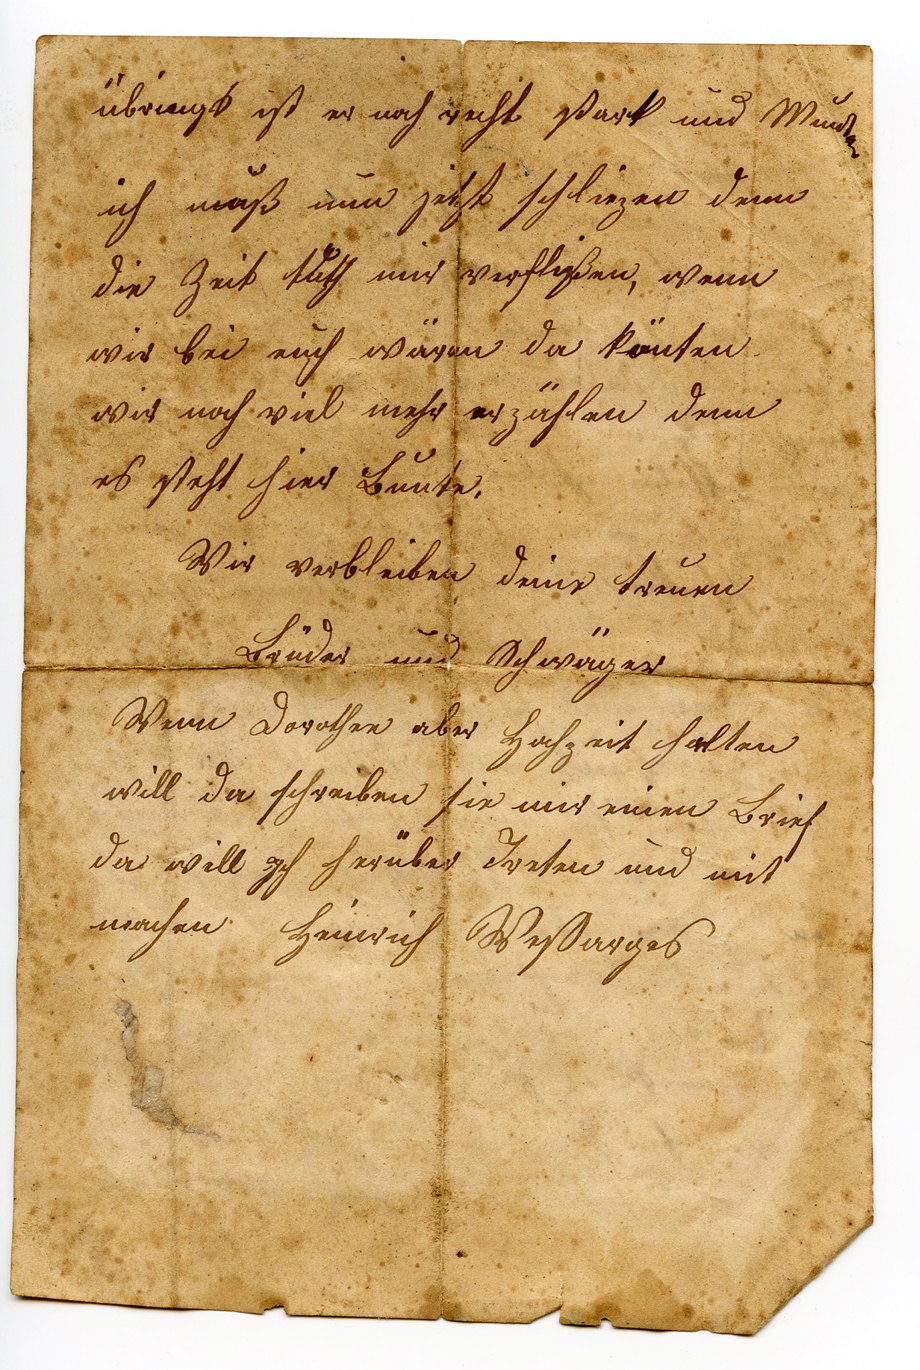 übrings ist er noch recht stark und Munter
ich muß nun jetzt schliezen denn
die Zeit tuth mir verfließen, wenn
wir bei euch wären da könten
wir noch viel mehr erzählen denn
es steht hier Bunte.
Wir verbleiben deine treuen
Brüder und Schwäger
Wenn Dorothee aber Hochzeit halten
will da schreiben sie mir einen Brief
da will ich herüber Treten und mit
machen Heinrich Weßarges